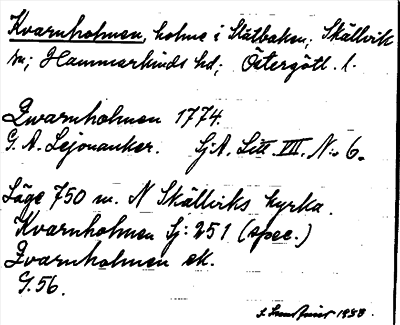 Kvarnholmen, holme i Slätbaken; Skällvik
sn; Hammarkinds hd; Östergötl. l.
Qvarnholmen 1774.
G. A. Lejonanker. SjA. Litt. VIII. No. 6.
Läge 750 m. N Skällviks kyrka.
Kvarnholmen Sj: 251 (spec.)
Qvarnholmen ek.
G. 56.
1938.